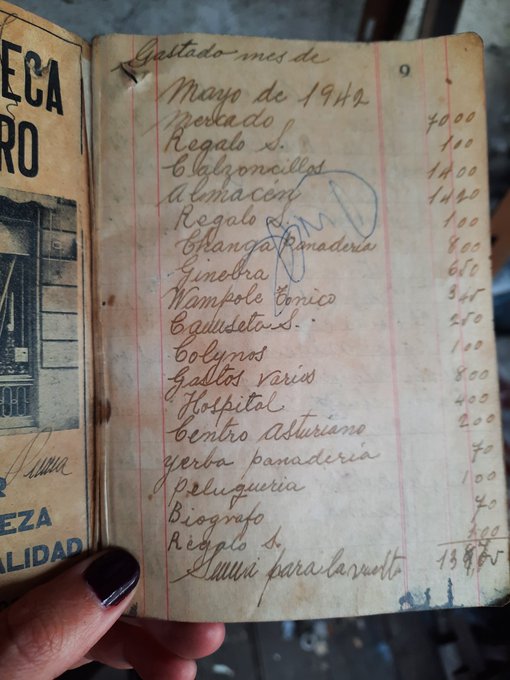 ECA
RO
R
EZA
ALIDAD
Gastado mes de
9
Mayo de 1942
Mercado 7000
Regalo S. 100
Calzoncillos 1400
Almacén 1420
Regalo S. 100
Changa panaderia 800
Ginebra 650
Wampole Tonico 345
Camiseta S. 250
Colynos 100
Gastos varios 800
Hospital 400
Centro Asturiano 200
yerba panaderia 70
Peluqueria 100
Biografo 70
Regalo S. 100
Suma para la vuelta